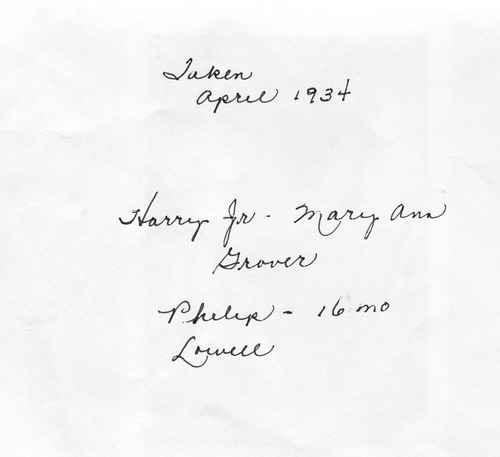 Taken
April 1934
Harry Jr. - Mary Ann
Grover
Philip - 16 mo
Lowell